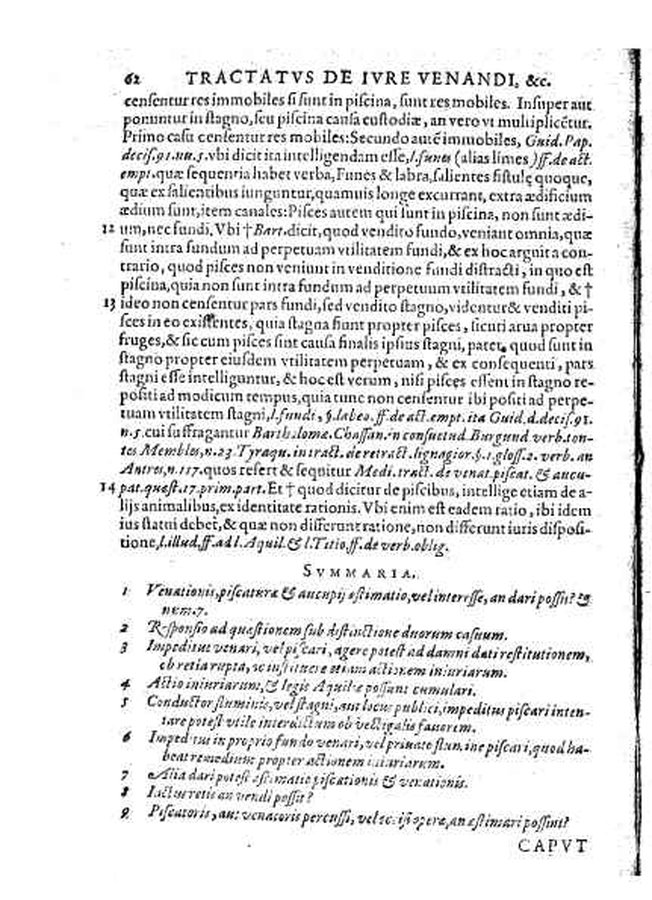 62 TRACTATVS DE IVRE VENANDI, &c.
censentur res immobiles si sunt in piscina, sunt res mobiles. Insuper aut
ponuntur in stagno, seu piscina causa custodiæ, an vero vt multiplicētur.
Primo casu censentur res mobiles: Secundo autē immobiles, Guid. Pap.
decis. 91. nu. 5. vbi dicit ita intelligendam esse, l. funes (alias limes) ff. de act.
empt. quæ sequentia habet verba, Funes & labra, salientes fistulę quoque,
quæ ex salientibus iunguntur, quamuis longe excurrant, extra ædificium
ædium sunt, item canales: Pisces autem qui sunt in piscina, non sunt ædi-
12 um, nec fundi. Vbi † Bart. dicit, quod vendito fundo, veniant omnia, quæ
sunt intra fundum ad perpetuam vtilitatem fundi, & ex hoc arguit a con-
trario, quod pisces non veniunt in venditione fundi distracti, in quo est
piscina, quia non sunt intra fundum ad perpetuum vtilitatem fundi, & †
13 ideo non censentur pars fundi, sed vendito stagno, videntur & venditi pi-
sces in eo existentes, quia stagna fiunt propter pisces, sicuti arua propter
fruges, & sic cum pisces sint causa finalis ipsius stagni, patet, quod sunt in
stagno propter eiusdem vtilitatem perpetuam, & ex consequenti, pars
stagni esse intelliguntur, & hoc est verum, nisi pisces essent in stagno re-
positi ad modicum tempus, quia tunc non censentur ibi positi ad perpe-
tuam vtilitatem stagni, l. fundi, §. labeo. ff. de act. empt. ita Guid. d. decis. 91.
n. 5. cui suffragantur Bartholomæ. Chassan. in consuetud. Burgund verb. ton-
tes Membles, n. 23. Tyraqu. in tract. de retract. lignagior. §. 1. gloss. 2. verb. an
Antres, n. 117. quos refert & sequitur Medi. tract. de venat. piscat. & aucu-
14 pat. quæst. 17. prim. part. Et † quod dicitur de piscibus, intellige etiam de a-
lijs animalibus, ex identitate rationis. Vbi enim est eadem ratio, ibi idem
ius statui debet, & quæ non differunt ratione, non differunt iuris disposi-
tione, l. illud, ff. ad l. Aquil. & l. Titio, ff. de verb. oblig.
SVMMARIA.
1 Venationis, piscaturæ & aucupij æstimatio, vel interesse, an dari possit? &
num. 7.
2 Responsio ad quæstionem sub distinctione duorum casuum.
3 Impeditus venari, vel piscari, agere potest ad damni dati restitutionem,
ob retia rupta, ac instituere etiam actionem iniuriarum.
4 Actio iniuriarum, & legis Aquiliæ possunt cumulari.
5 Conductor fluminis, vel stagni, aut locus publici, impeditus piscari inten-
tare potest vtile interdictum ob vectigalis fauorem.
6 Impeditus in proprio fundo venari, vel priuato flumine piscari, quod ha-
beat remedium propter actionem iniuriarum.
7 Alia dari potest æstimatio piscationis & venationis.
8 Iactus retis an vendi possit?
9 Piscatoris, aut venatoris percussi, vel occisi operæ, an æstimari possint?
CAPVT